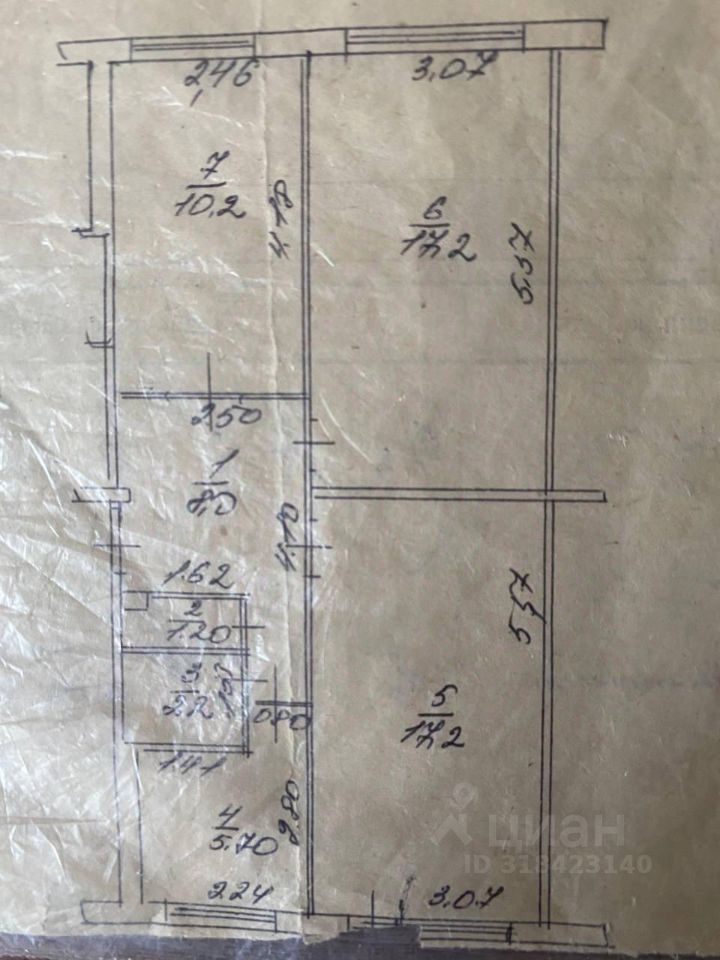 2,46
3,07
7
10.2
4.18
6
17,2
5.57
2,50
1
8,0
4.10
1.62
2
1.20
3
2.2
0.80
5.57
5
17,2
1.41
2.80
4
5.70
2.24
3.07
циан
ID 318423140